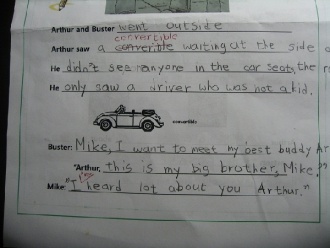 Arthur and Buster went outside
convertible
Arthur saw a convertible waiting at the side o
He didn't see anyone in the car seats, the r
He only saw a driver who was not a kid.
convertible
Buster: Mike, I want to meet my best buddy Ar
"Arthur, this is my big brother, Mike."
Mike: "I heard lot about you Arthur."